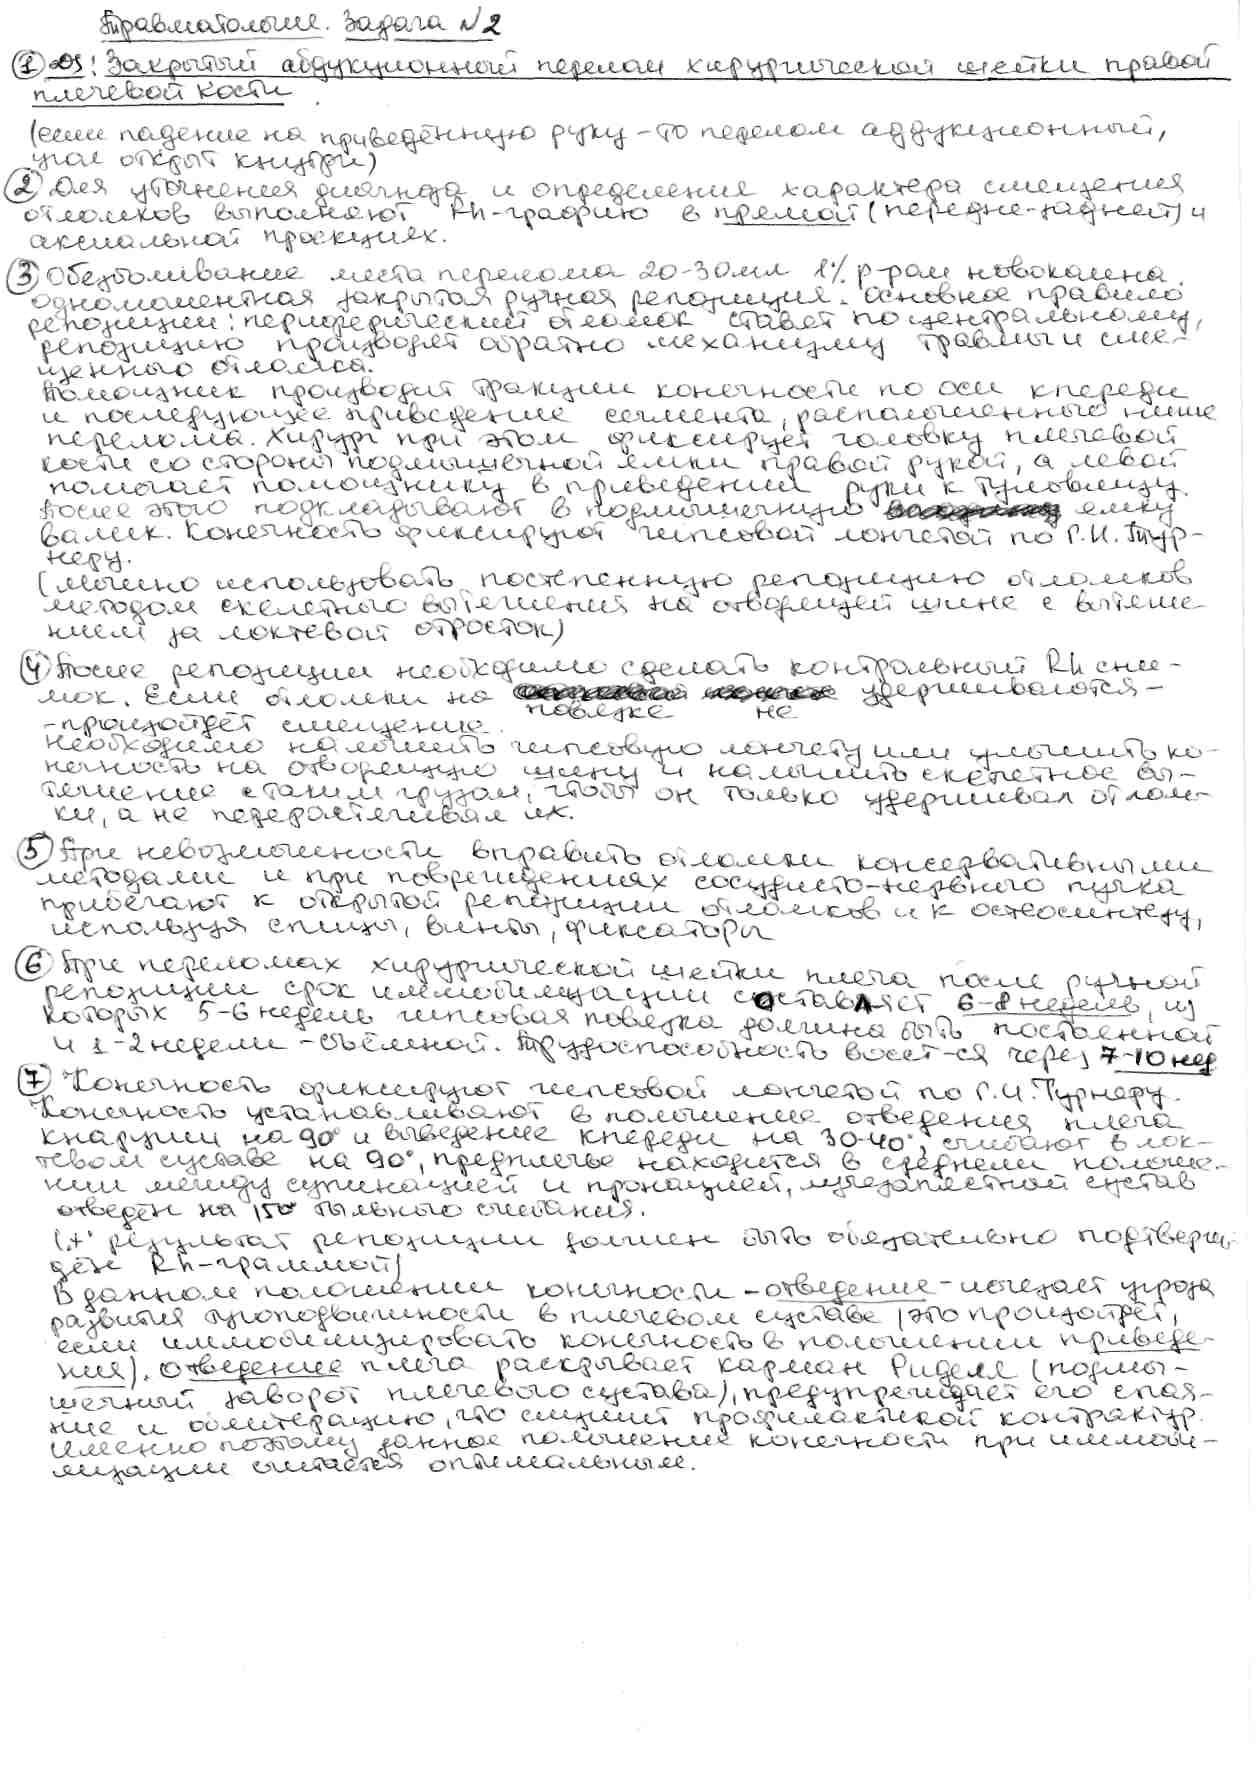 Травматология. Задача №2
① Ds: Закрытый абдукционный перелом хирургической шейки правой
плечевой кости
(если падение на приведённую руку – то перелом аддукционный,
угол открыт кнутри)
② Для уточнения диагноза и определения характера смещения
отломков выполняют Rh-графию в прямой (передне-задней) и
аксиальной проекциях.
③ Обезболивание места перелома 20-30мл 1% р-ром новокаина.
одномоментная закрытая ручная репозиция. Основное правило
репозиции: периферический отломок ставят по центральному,
репозицию производят обратно механизму травмы и сме-
щенного отломка.
Помощник производит тракции конечности по оси кпереди
и последующее приведение сегмента, расположенного ниже
перелома. Хирург при этом фиксирует головку плечевой
кости со стороны подмышечной ямки правой рукой, а левой
помогает помощнику в приведении руки к туловищу.
После этого подкладывают в подмышечную ямку
валик. Конечность фиксируют гипсовой лонгетой по Г.И. Тур-
неру.
(можно использовать постепенную репозицию отломков
методом скелетного вытяжения на отводящей шине с вытяже-
нием за локтевой отросток)
④ После репозиции необходимо сделать контрольный Rh сни-
мок. Если отломки на повязке не удерживаются –
- произойдёт смещение.
необходимо наложить гипсовую лонгету или уложить ко-
нечность на отводящую шину и наложить скелетное вы-
тяжение с таким грузом, чтобы он только удерживал отлом-
ки, а не перерастягивал их.
⑤ При невозможности вправить отломки консервативными
методами и при повреждениях сосудисто-нервного пучка
прибегают к открытой репозиции отломков и к остеосинтезу,
используя спицы, винты, фиксаторы
⑥ При переломах хирургической шейки плеча после ручной
репозиции срок иммобилизации составляет 6-8 недель, из
которых 5-6 недель гипсовая повязка должна быть постоянной
и 1-2 недели – съёмной. Трудоспособность восст-ся через 7-10 нед
⑦ Конечность фиксируют гипсовой лонгетой по Г.И. Турнеру.
Конечность устанавливают в положение отведения плеча
кнаружи на 90° и выведение кпереди на 30-40°, сгибают в лок-
тевом суставе на 90°, предплечье находится в среднем положе-
нии между супинацией и пронацией, лучезапястной сустав
отведён на 150° тыльного сгибания.
(+ результат репозиции должен быть обязательно подтверж-
дён Rh-граммой)
В данном положении конечности – отведение – исчезает угроза
развития тугоподвижности в плечевом суставе (это произойдёт,
если иммобилизировать конечность в положении приведе-
ния). Отведение плеча раскрывает карман Риделя (подмы-
шечный заворот плечевого сустава), предупреждает его спая-
ние и облитерацию, что служит профилактикой контрактур.
Именно поэтому данное положение конечности при иммоби-
лизации считается оптимальным.